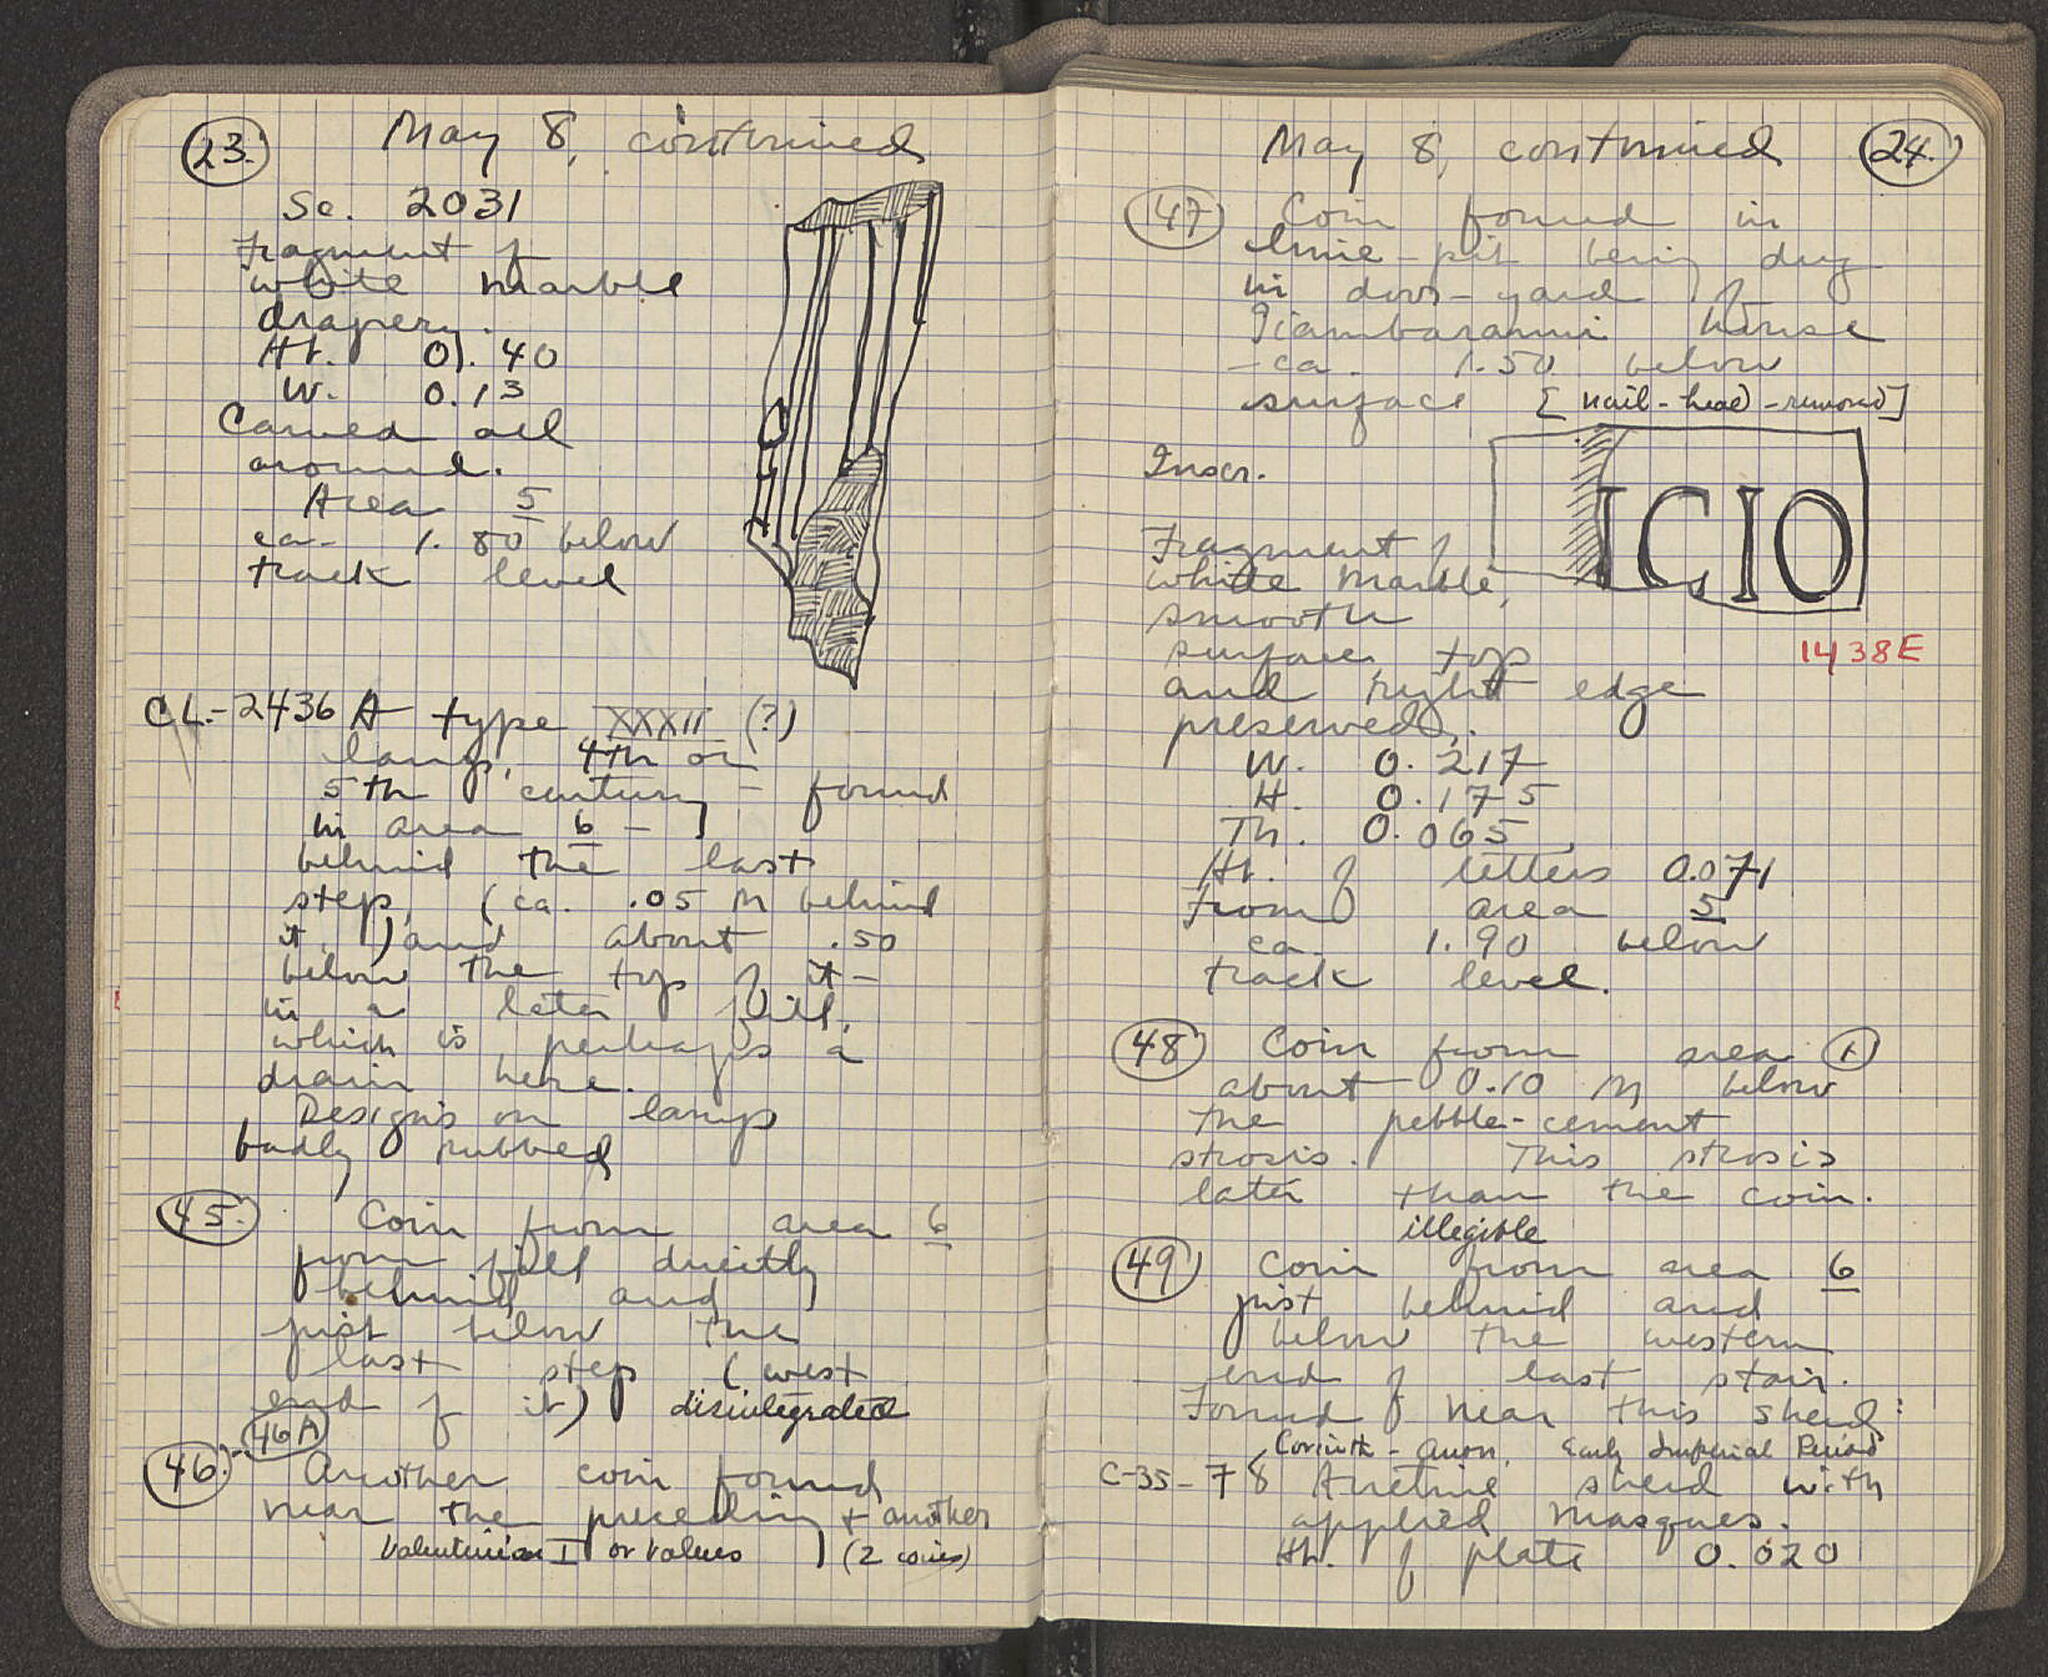 23.
May 8, continued
Sc. 2031
Fragment of
white marble
drapery.
Ht. 0.40
W. 0.13
Carved all
around.
Area 5
ca. 1.80 below
track level
CL.-2436 A type XXXII (?)
lamp, 4th or
5th century - found
in area 6 -
behind the last
step, (ca. .05 m behind
it,) and about .50
below the top of it -
in a later fill,
which is perhaps a
drain here.
Designs on lamp
badly rubbed
45. Coin from area 6
from fill directly
behind and
just below the
last step (west
end of it) disintegrated
46A
46. Another coin found
near the preceding + another
Valentinian I or Valens (2 coins)
May 8, continued
24.
47 Coin found in
lime-pit being dug
in door-yard of
Giambaranni house
- ca. 1.50 below
surface [nail-head-removed]
Inscr.
ICIO
Fragment of
white marble,
smooth
surface, top
and right edge
preserved.
1438E
W. 0.217
H. 0.175
Th. 0.065
Ht. of letters 0.071
From area 5
ca. 1.90 below
track level.
48 Coin from area 1
about 0.10 m below
the pebble-cement
strosis. This strosis
later than the coin.
illegible
49 Coin from area 6
just behind and
below the western
end of last stair.
Found near this sherd:
Corinth - Anon. Early Imperial Period
C-35-78 Arretine sherd with
applied masques.
Ht. of plate 0.020